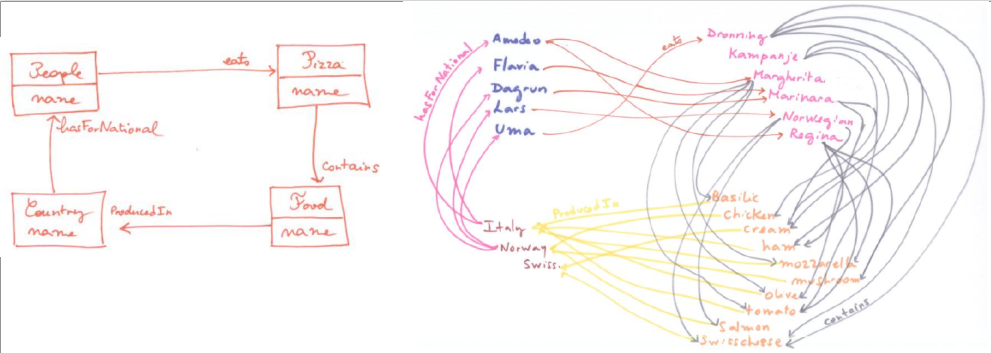 People
name
eats
Pizza
name
hasForNational
contains
Country
name
ProducedIn
Food
name
hasForNational
Amedeo
Flavia
Dagrun
Lars
Uma
eats
Dronning
Kampanje
Margherita
Marinara
Norwegian
Regina
Italy
Norway
Swiss
ProducedIn
Basilic
chicken
cream
ham
mozzarella
mushroom
olive
tomato
Salmon
Swisscheese
contains